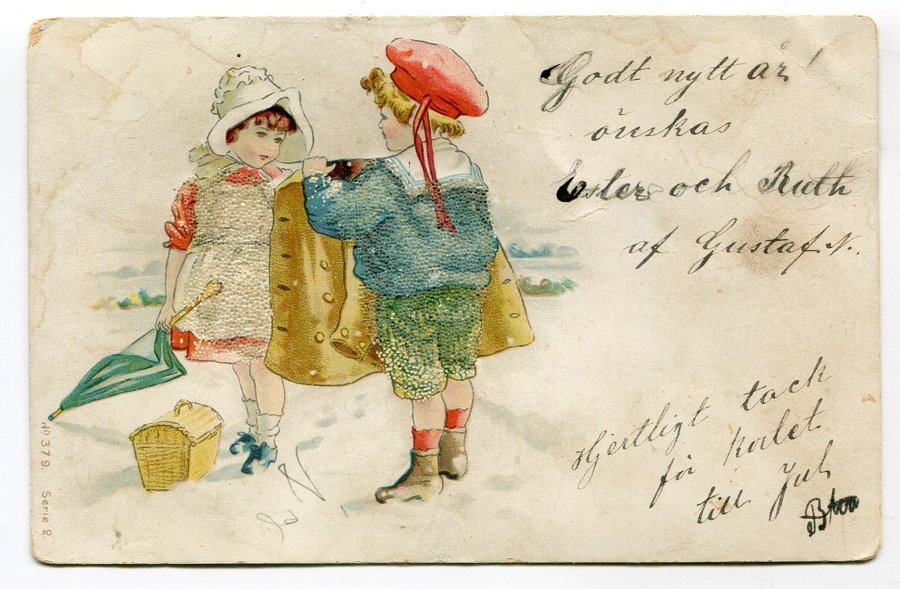 Godt nytt år!
önskas
Ester och Ruth
af Gustaf N.
Hjertligt tack
för kortet
till Jul
No 379. Serie 2